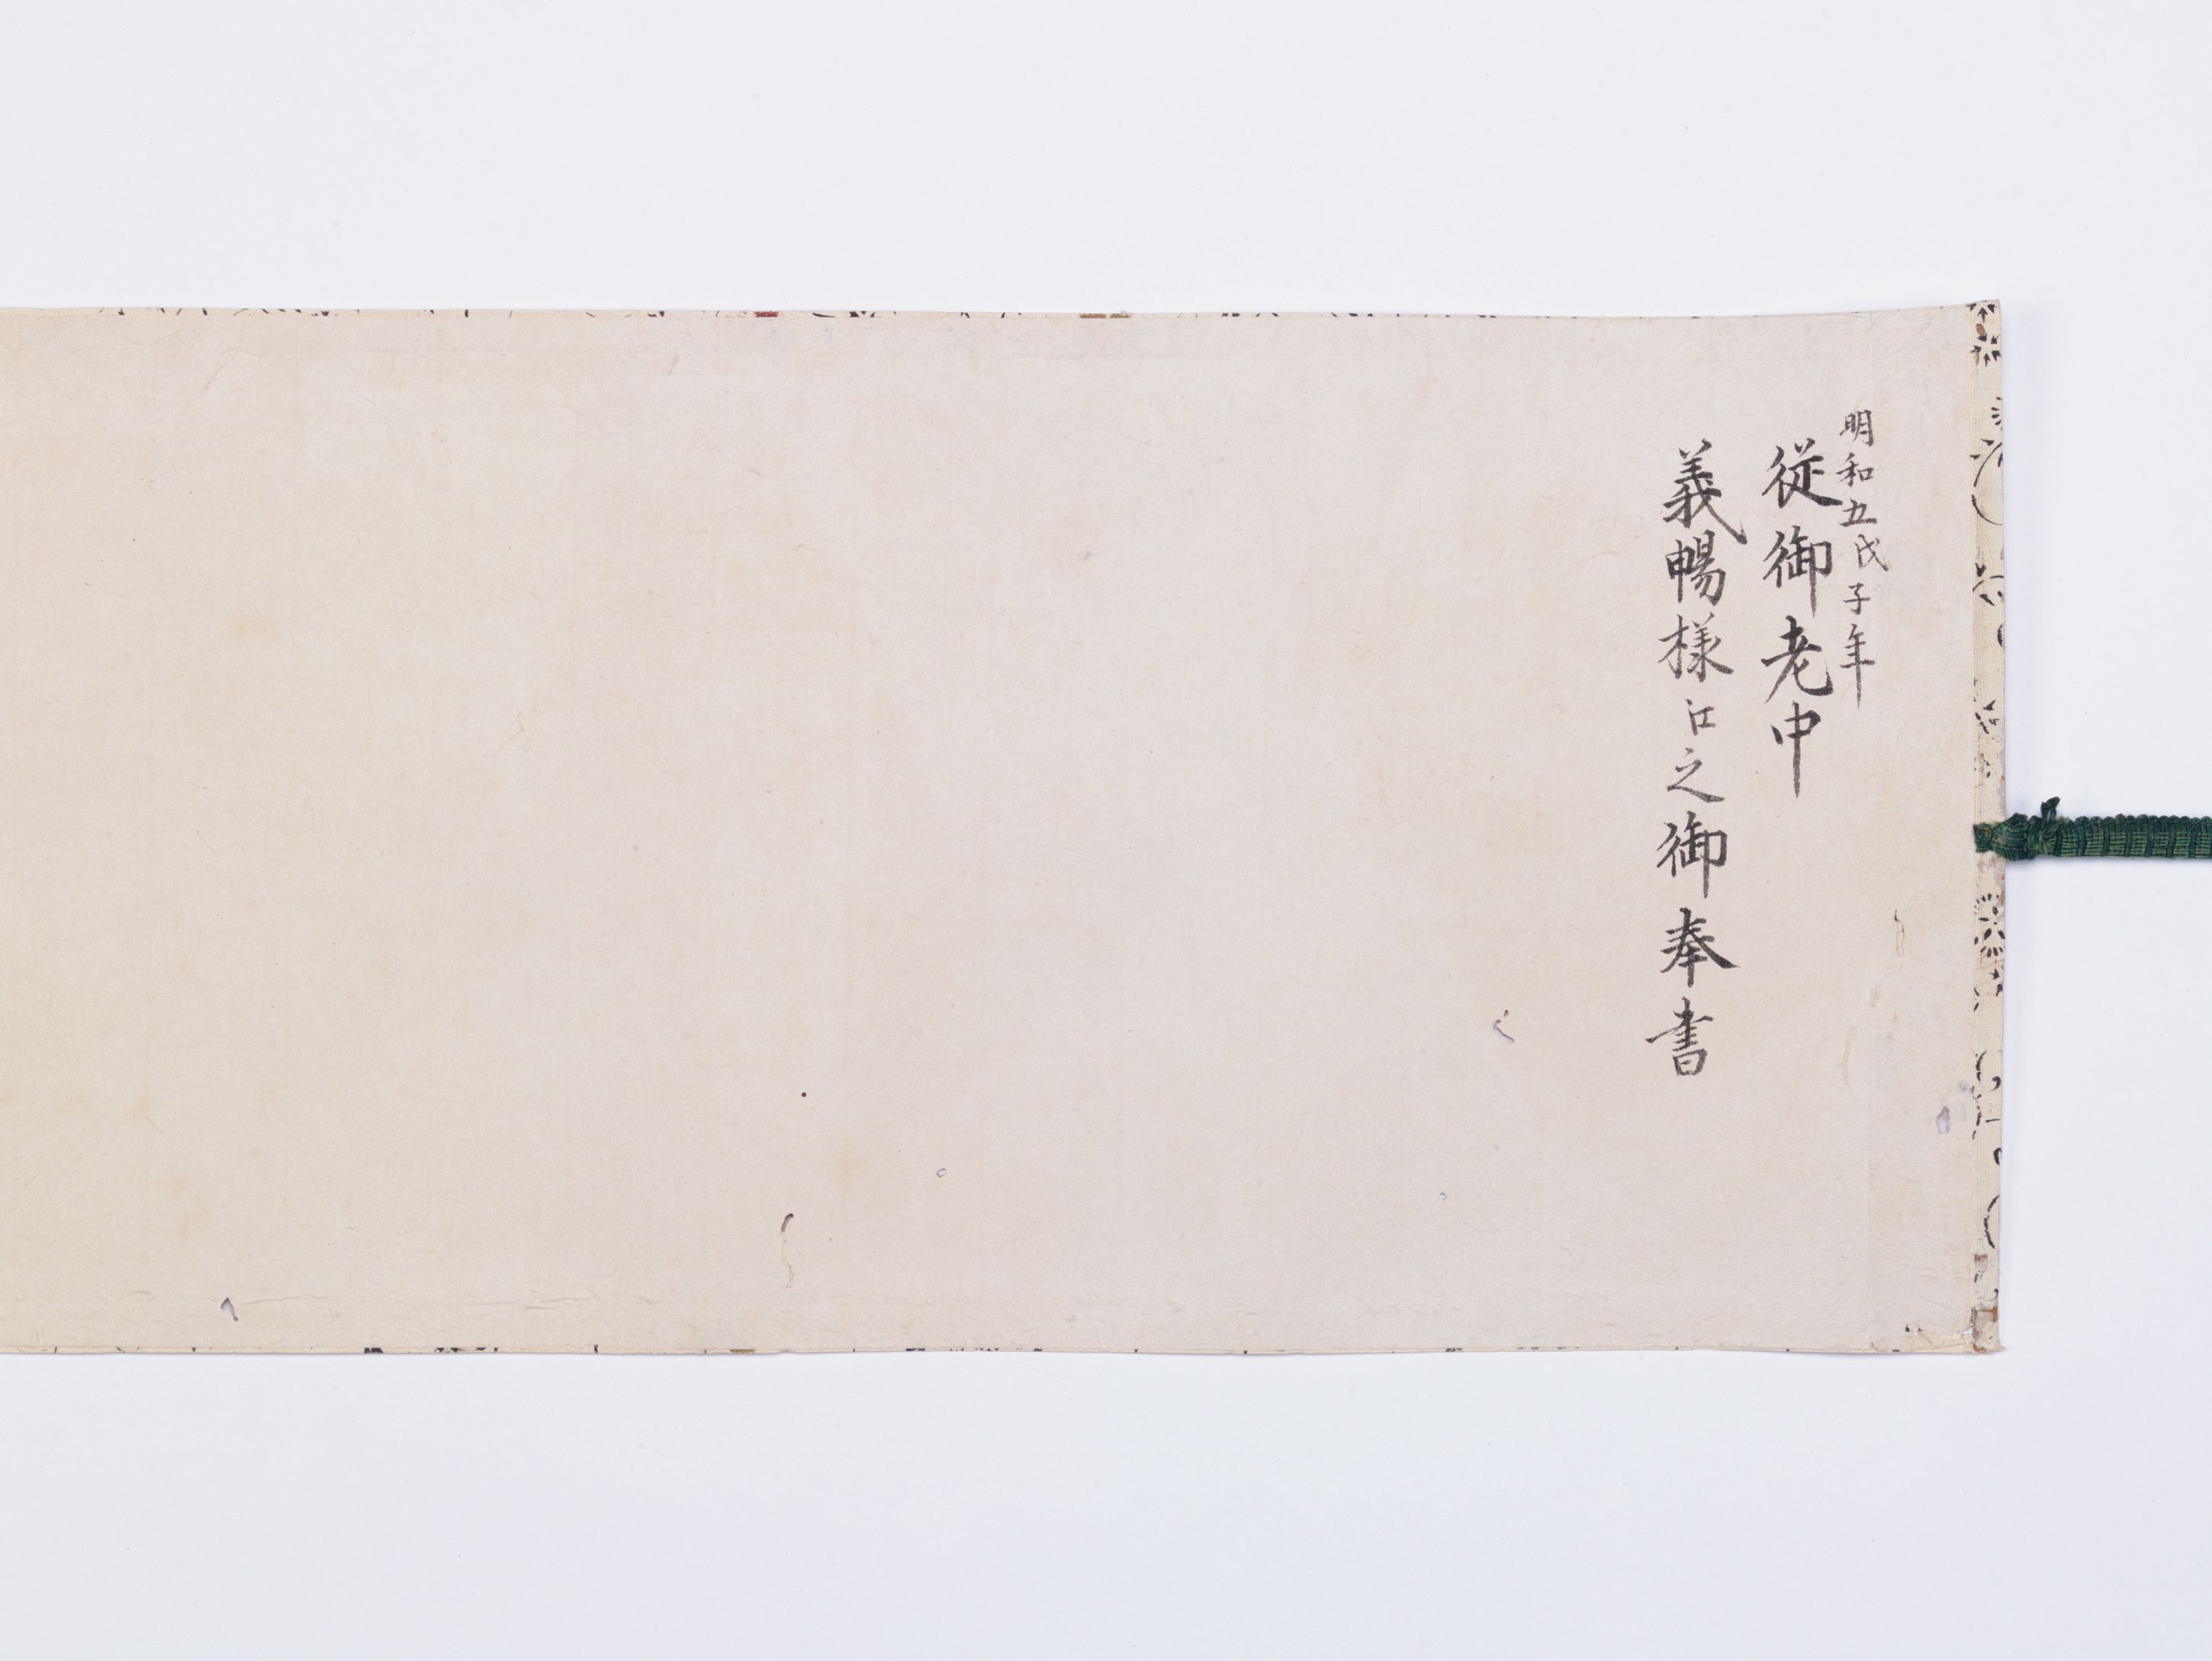 明和五戊子年
従御老中
義暢様江之御奉書